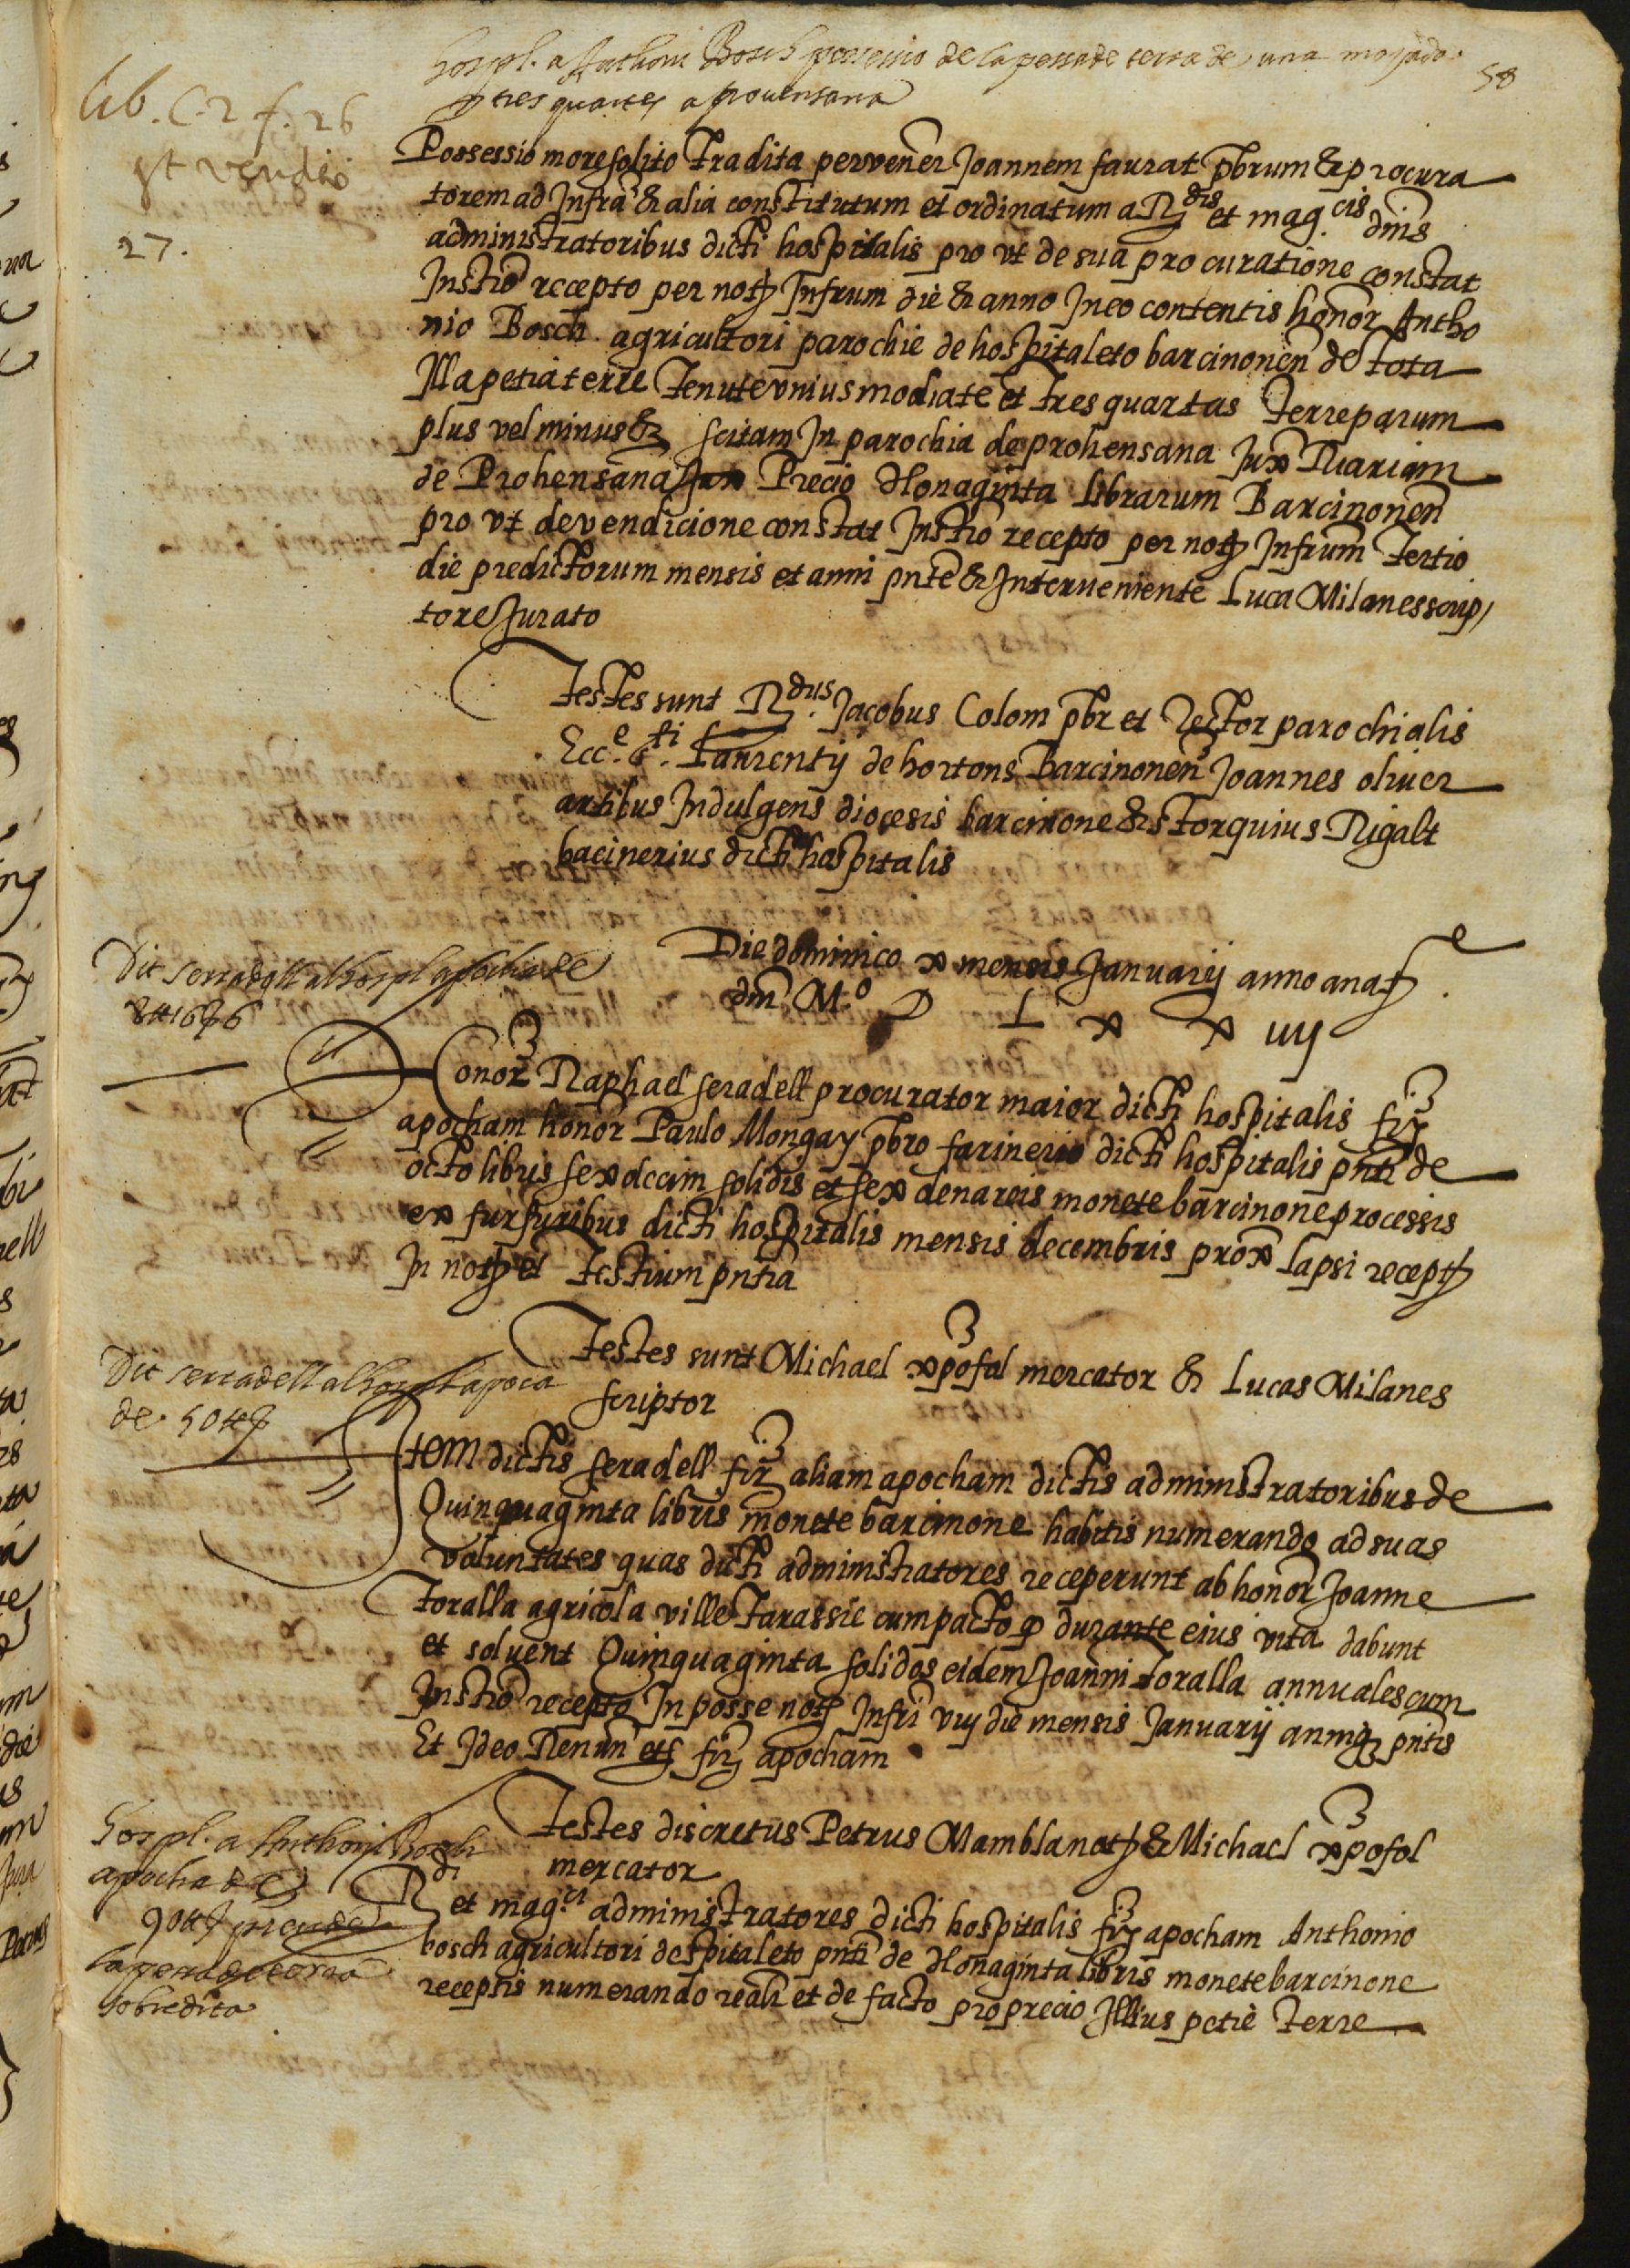 hospl. a Anthoni Bosch possessio de la pessa de terra de una mojada
y tres quartes a provensana
58
lib. C. 2 f. 26
est venditio
27.
Possessio more solito Tradita per vener Joannem faurat pbrum & procura
torem ad Infra & alia constitutum et ordinatum a Rdis et mag.cis dnis
administratoribus dicti hospitalis pro vt de sua procuratione constat
Instro recepto per noty Infrum die & anno In eo contentis honor Antho
nio Bosch agricultori parochie de hospitaleto barcinonen de tota
Illa petia terre Tenute vnius modiate et tres quartas Terre parum
plus vel minus & scitam In parochia de prohensana Jux Riariam
de Prohensana Precio Nonaginta librarum Barcinonen
pro vt de vendicione constat Instro recepto per noty Infrum Tertio
die predictorum mensis et anni pnte & Interueniente Luca Milanes scrip
tore Jurato
Testes sunt Rdus Jacobus Colom pbr et Rector parochialis
Ecc.e S.ti Laurentij de hortons Barcinonen Joannes oliuer
artibus Indulgens diocesis barcinone & storquius Rigalt
bacinerius dicti hospitalis
Die dominico x mensis Januarij anno a nat.e
dni M.o D L x x iiij
Dit serradell al hospl apocha de
8 ll 16 s 6
Honor Raphael seradell procurator maior dicti hospitalis fir
apocham honor Paulo Mongay pbro farinerio dicti hospitalis pnti de
octo libris sexdecim solidis et sex denareis monete barcinone processis
ex furfuribus dicti hospitalis mensis decembris prox lapsi recept
In noty et Testium pntia
Testes sunt Michael xpofol mercator & Lucas Milanes
scriptor
Dit serradell al hospl apoca
de 50 ll
Item dictis seradell fir aliam apocham dictis administratoribus de
Quinquaginta libris monete barcinone habitis numerando ad suas
voluntates quas dicti administratores receperunt ab honor Joanne
Toralla agricola ville Tarassie cum pacto q durante eius vita dabunt
et soluent Quinquaginta solidos eidem Joanni Toralla annuales cum
Instro recepto In posse noty Infri viij die mensis Januarij anniq pntis
Et Ideo Renun etc fir apocham
Testes discretus Petrus Mambla noty & Michael xpofol
mercator
hospl. a Anthoni Bosch
apocha de
90 ll preu de
la pessa de terra
sobredita
Rdi et mag.ci administratores dicti hospitalis fir apocham Anthonio
bosch agricultori despitaleto pnti de Nonaginta libris monete barcinone
receptis numerando reali et de facto pro precio Illius petie Terre